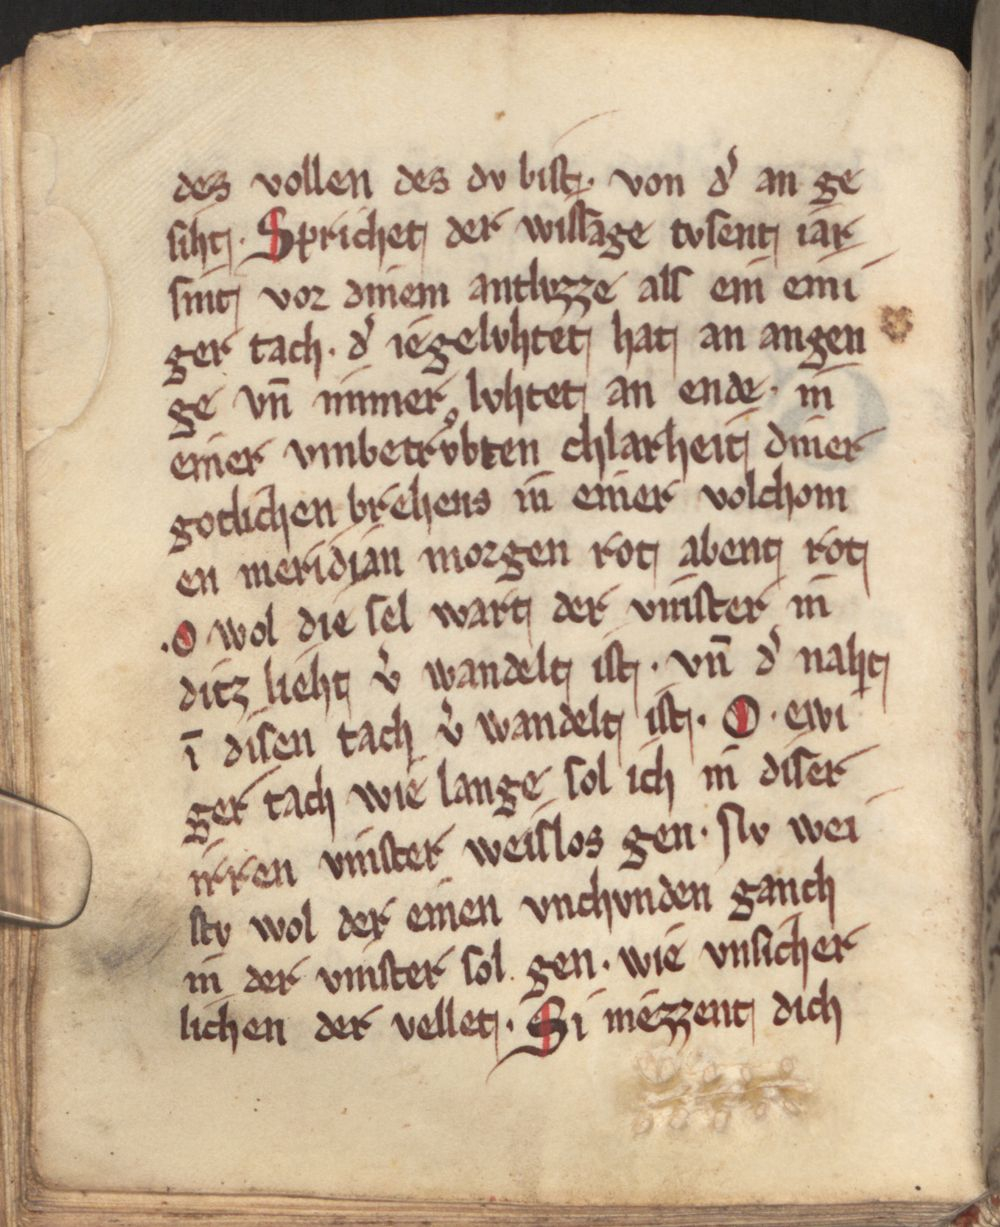 des vollen des dv bist. von d᾽ an ge
siht. Sprichet der wissage tvsent iar
sint vor dinem antlvzze als ein eini
ger tach. d᾽ ie gelvhtet hat an angen
ge vn̄ immer lvhtet an ende. in
einer vmbetrvͦbten chlarheit diner
gotlichen brehens in einer volchom
en meridian morgen rot abent rot
.O wol die sel wart der vinster in
ditz lieht v᾽ wandelt ist. vn̄ d᾽ naht
ī disen tach v᾽ wandelt ist. O. ewi
ger tach wie lange sol ich in diser
irren vinster weislos gen. slv wei
stv wol der einen vnchvnden ganch
in der vinster sol gen. wie vnsicher
lichen der vellet. Si mezzent dich